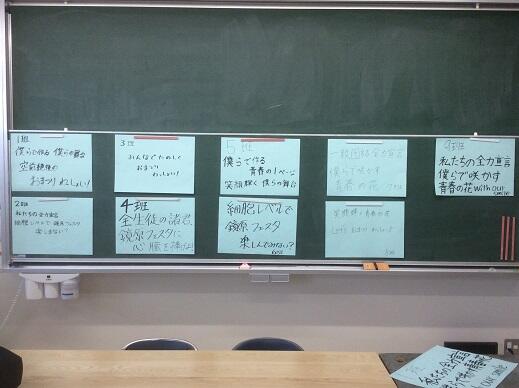 1班
僕らで作る 僕らの舞台
空前絶後の
おまつり わっしょい!
2班
私たちの全力宣言
細胞レベルで 鏡原フェスタ
楽しまない?
3班
みんなでたのしく
おまつり
わっしょい!
4班
全生徒の諸君、
鏡原フェスタに
心臓を捧げよ!
5班
僕らで作る
青春の1ページ
笑顔輝く 僕らの舞台
細胞レベルで
鏡原フェスタ
楽しんでみない?
6班
一致団結全力宣言
僕らで咲かす
青春の花
7班
笑顔輝く青春の
8班
9班
私たちの全力宣言
僕らで咲かす
青春の花 with our
smile